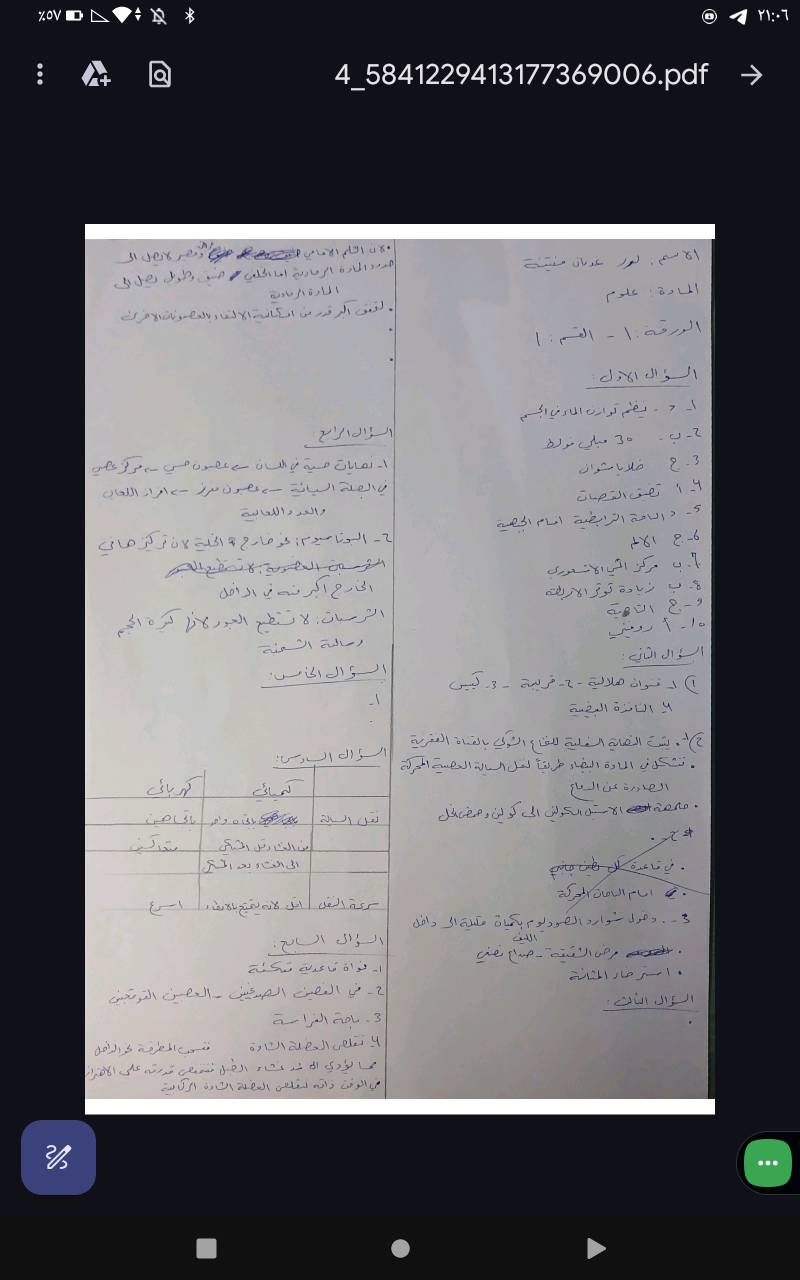 ٪٥٧
٢١:٠٦
4_5841229413177369006.pdf
الاسم: نور عدنان
المادة: علوم
الورقة: ١ - القسم: ١
السؤال الاول:
١- د. ينظم توازن الماء في الجسم
٢- ب. 30 ميلي فولط
٣- ج خلايا شوان
٤- أ تضيق القصبات
٥- د الباحة الترابطية امام الجبهية
٦- ج الالم
٧- ب مركز الحس الشعوري
٨- ب زيادة توتر الاربطة
٩- ج التائهة
١٠- أ روفيني
السؤال الثاني:
١) ١- قنوات هلالية - ٢- قريبة - ٣- كييس
٤ النافذة البيضية
٢) ١. يثبت النهاية السفلية للنخاع الشوكي بالقناة الفقرية
. تشكل في المادة البيضاء طريقاً لنقل السيالة العصبية المحركة
الصادرة عن الدماغ
. حلمهة الاستيل الكولين الى كولين وحمض الخل
٢- .
. في قاعدة كل
. امام الباحات المحركة
٣- . دخول شوارد الصوديوم بكميات قليلة الى داخل
الليف
. مرض الشقيقة - صداع نصفي
. استرخاء المثانة
السؤال الثالث:
. لان القرن الامامي وقصير لايصل الى
حدود المادة الرمادية اما الخلفي ضيق وطويل يصل الى
المادة الرمادية
. لتحقق اكبر قدر من امكانية الالتقاء بالعصبونات الاخرى
السؤال الرابع:
١- نهايات حسية في اللسان ← عصبون حسي ← مركز عصبي
في البصلة السيسائية ← عصبون مفرز ← افراز اللعاب
والغدد اللعابية
٢- البوتاسيوم: نحو خارج الخلية لان تركيزها في
الخارج اكبر منه في الداخل
الشرسبات: لا تستطيع العبور لانها كبيرة الحجم
وسالبة الشحنة
السؤال الخامس:
١-
السؤال السادس:
كيميائي كهربائي
نقل السيالة باتجاه واحد باتجاهين
من الغشاء قبل المشبكي متعاكسين
الى الغشاء بعد المشبكي
سرعة النقل اقل لانه يتمتع بالابطاء اسرع
السؤال السابع:
١- نواة قاعدية
٢- في الفصين الصدغيين - الفصين القوقعيين
٣- باحة الفراسة
٤ تقلص العضلة الشادة فتسحب المطرقة نحو الداخل
مما يؤدي الى شد غشاء الطبل فتنخفض قدرته على الاهتزاز
في الوقت ذاته تتقلص العضلة الشادة الركابية